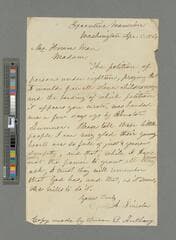 Executive Mansion
Washington
Mrs. Horace Mann
Madam:
The petition of
persons under eighteen, praying that
I would free all slave children,
and the heading of which petition
it appears you wrote, was handed
me a few days ago by Senator
Sumner. Please tell these little
people I am very glad their young
hearts are so full of just & generous
sympathy, and that, while I have
not the power to grant all they
ask, I trust they will remember
that God has, and that, as it seems,
He wills to do it.
Yours truly
A. Lincoln
Copy made by